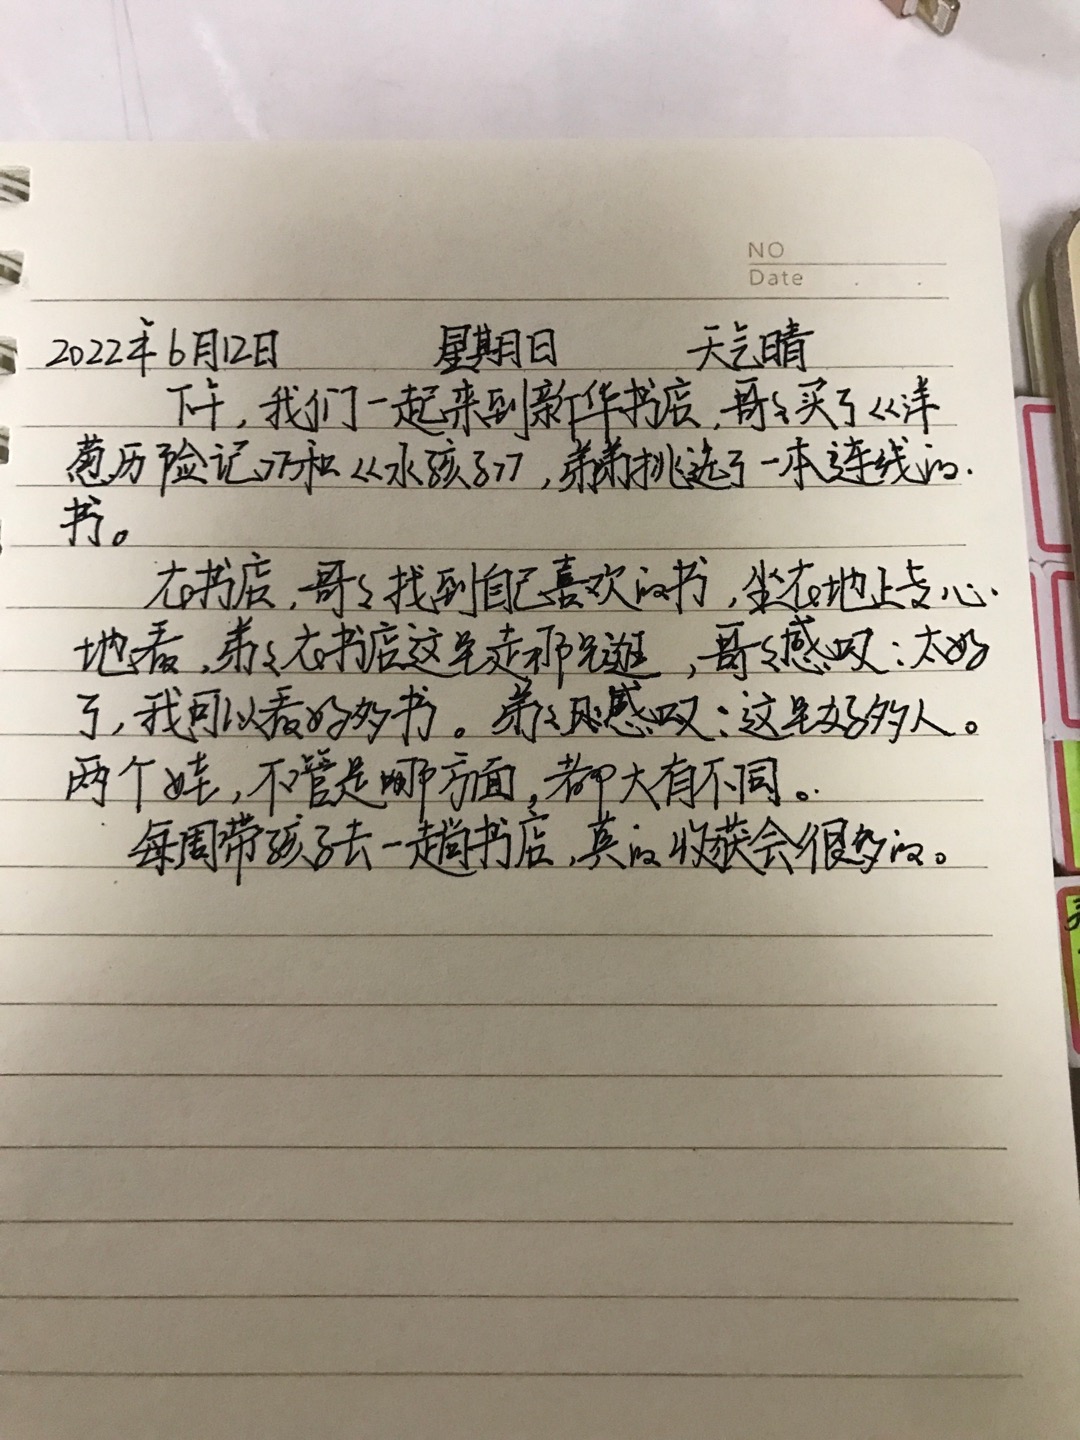 NO
Date
2022年6月12日 星期日 天气晴
下午，我们一起来到新华书店，哥々买了《洋
葱历险记》和《水孩子》，弟弟挑选了一本连线的
书。
在书店，哥々找到自己喜欢的书，坐在地上专心
地看，弟々在书店这里走那儿逛，哥々感叹：太好
了，我可以看好多书。弟々感叹：这里好多人。
两个娃，不管是哪方面，都大有不同。
每周带孩子去一趟书店，真的收获会很多的。